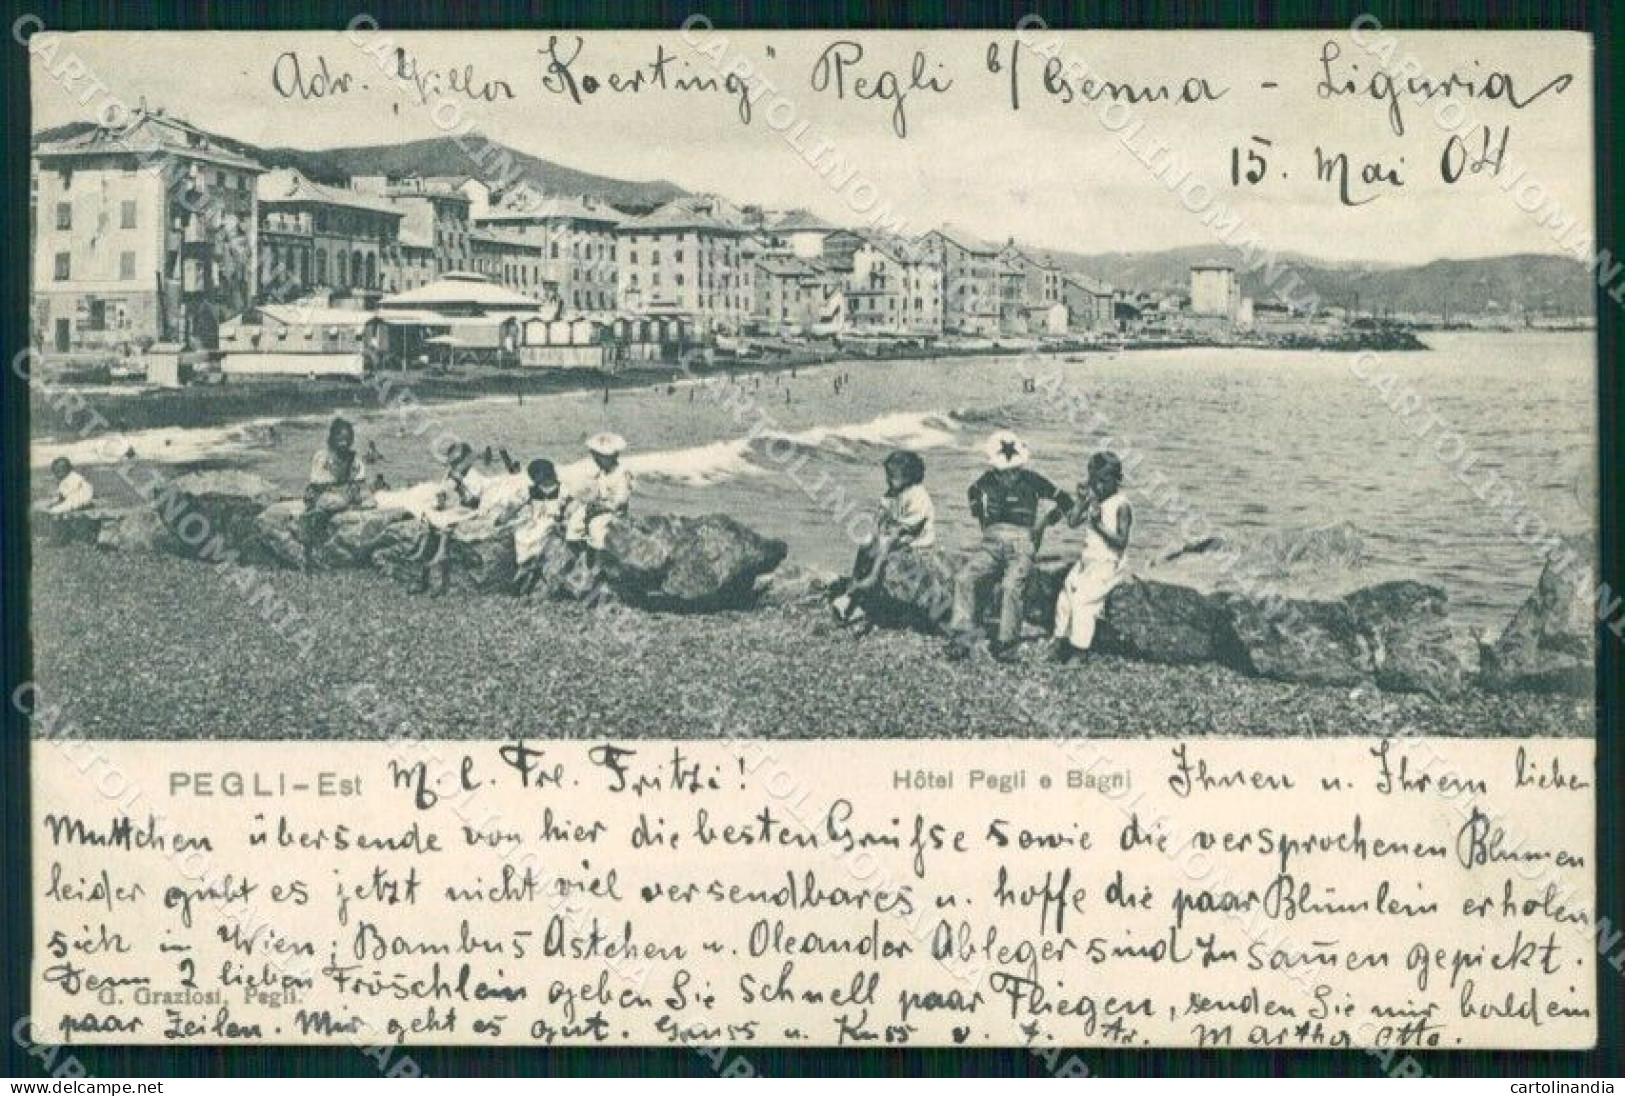 Adr. „Villa Koerting" Pegli b/ Genua - Liguria
15. Mai 04
PEGLI-Est M. l. Frl. Fritzi! Hôtel Pegli e Bagni Ihnen u. Ihrem lieben
Muttchen übersende von hier die besten Grüsse sowie die versprochenen Blumen
leider giebt es jetzt nicht viel versendbares u. hoffe die paar Blümlein erholen
sich in Wien; Bambus Ästchen u. Oleander Ableger sind zusam̄en gepickt.
Denn 2 lieben Fröschlein geben Sie schnell paar Fliegen, senden Sie mir bald ein
G. Graziosi, Pegli.
paar Zeilen. Mir geht es gut. Gruss u. Kuss v. Martha Otto.
CARTOLINOMANIA
cartolinandia